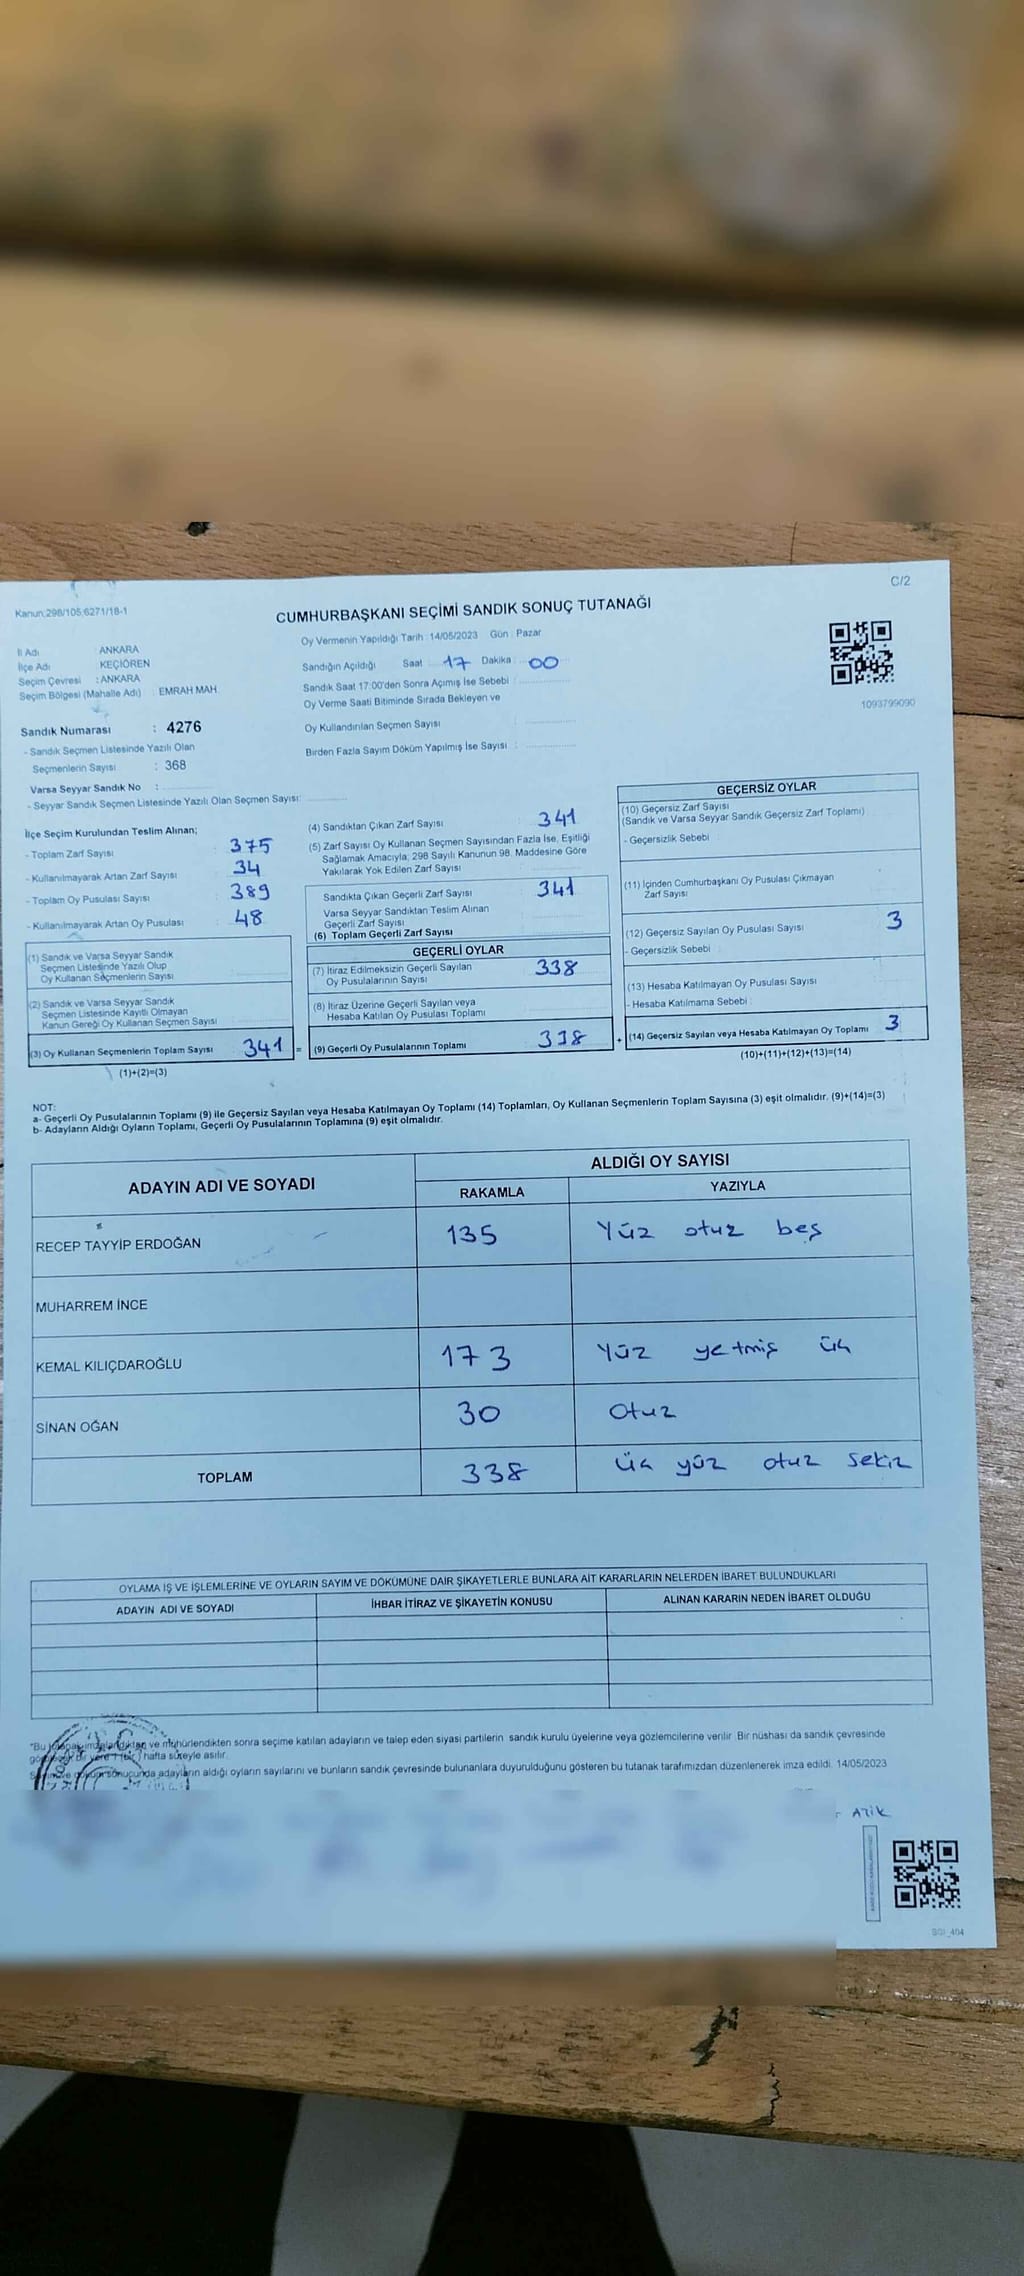 C/2
Kanun:298/105,6271/18-1
CUMHURBAŞKANI SEÇİMİ SANDIK SONUÇ TUTANAĞI
Oy Vermenin Yapıldığı Tarih : 14/05/2023 Gün : Pazar
İl Adı : ANKARA
İlçe Adı : KEÇİÖREN
Seçim Çevresi : ANKARA
Seçim Bölgesi (Mahalle Adı) : EMRAH MAH.
Sandığın Açıldığı Saat 17 Dakika : 00
Sandık Saat 17:00'den Sonra Açımış İse Sebebi :
Oy Verme Saati Bitiminde Sırada Bekleyen ve
Oy Kullandırılan Seçmen Sayısı :
Birden Fazla Sayım Döküm Yapılmış İse Sayısı :
1093799090
Sandık Numarası : 4276
- Sandık Seçmen Listesinde Yazılı Olan
Seçmenlerin Sayısı : 368
Varsa Seyyar Sandık No :
- Seyyar Sandık Seçmen Listesinde Yazılı Olan Seçmen Sayısı:
İlçe Seçim Kurulundan Teslim Alınan;
- Toplam Zarf Sayısı : 375
- Kullanılmayarak Artan Zarf Sayısı : 34
- Toplam Oy Pusulası Sayısı : 389
- Kullanılmayarak Artan Oy Pusulası : 48
(1) Sandık ve Varsa Seyyar Sandık
Seçmen Listesinde Yazılı Olup
Oy Kullanan Seçmenlerin Sayısı
(2) Sandık ve Varsa Seyyar Sandık
Seçmen Listesinde Kayıtlı Olmayan
Kanun Gereği Oy Kullanan Seçmen Sayısı
(3) Oy Kullanan Seçmenlerin Toplam Sayısı 341 =
(1)+(2)=(3)
(4) Sandıktan Çıkan Zarf Sayısı : 341
(5) Zarf Sayısı Oy Kullanan Seçmen Sayısından Fazla İse, Eşitliği
Sağlamak Amacıyla; 298 Sayılı Kanunun 98. Maddesine Göre
Yakılarak Yok Edilen Zarf Sayısı
Sandıkta Çıkan Geçerli Zarf Sayısı : 341
Varsa Seyyar Sandıktan Teslim Alınan
Geçerli Zarf Sayısı
(6) Toplam Geçerli Zarf Sayısı
GEÇERLİ OYLAR
(7) İtiraz Edilmeksizin Geçerli Sayılan
Oy Pusulalarının Sayısı 338
(8) İtiraz Üzerine Geçerli Sayılan veya
Hesaba Katılan Oy Pusulası Toplamı
(9) Geçerli Oy Pusulalarının Toplamı 338 +
GEÇERSİZ OYLAR
(10) Geçersiz Zarf Sayısı
(Sandık ve Varsa Seyyar Sandık Geçersiz Zarf Toplamı)
- Geçersizlik Sebebi :
(11) İçinden Cumhurbaşkanı Oy Pusulası Çıkmayan
Zarf Sayısı
(12) Geçersiz Sayılan Oy Pusulası Sayısı 3
- Geçersizlik Sebebi :
(13) Hesaba Katılmayan Oy Pusulası Sayısı
- Hesaba Katılmama Sebebi :
(14) Geçersiz Sayılan veya Hesaba Katılmayan Oy Toplamı 3
(10)+(11)+(12)+(13)=(14)
NOT:
a- Geçerli Oy Pusulalarının Toplamı (9) ile Geçersiz Sayılan veya Hesaba Katılmayan Oy Toplamı (14) Toplamları, Oy Kullanan Seçmenlerin Toplam Sayısına (3) eşit olmalıdır. (9)+(14)=(3)
b- Adayların Aldığı Oyların Toplamı, Geçerli Oy Pusulalarının Toplamına (9) eşit olmalıdır.
ADAYIN ADI VE SOYADI ALDIĞI OY SAYISI
RAKAMLA YAZIYLA
RECEP TAYYİP ERDOĞAN 135 Yüz otuz beş
MUHARREM İNCE
KEMAL KILIÇDAROĞLU 173 Yüz yetmiş üç
SİNAN OĞAN 30 Otuz
TOPLAM 338 üç yüz otuz sekiz
OYLAMA İŞ VE İŞLEMLERİNE VE OYLARIN SAYIM VE DÖKÜMÜNE DAİR ŞİKAYETLERLE BUNLARA AİT KARARLARIN NELERDEN İBARET BULUNDUKLARI
ADAYIN ADI VE SOYADI İHBAR İTİRAZ VE ŞİKAYETİN KONUSU ALINAN KARARIN NEDEN İBARET OLDUĞU
"Bu ve mühürlendikten sonra seçime katılan adayların ve talep eden siyasi partilerin sandık kurulu üyelerine veya gözlemcilerine verilir. Bir nüshası da sandık çevresinde
bir yere 1 (bir) hafta süreyle asılır.
sonucunda adayların aldığı oyların sayılarını ve bunların sandık çevresinde bulunanlara duyurulduğunu gösteren bu tutanak tarafımızdan düzenlenerek imza edildi. 14/05/2023